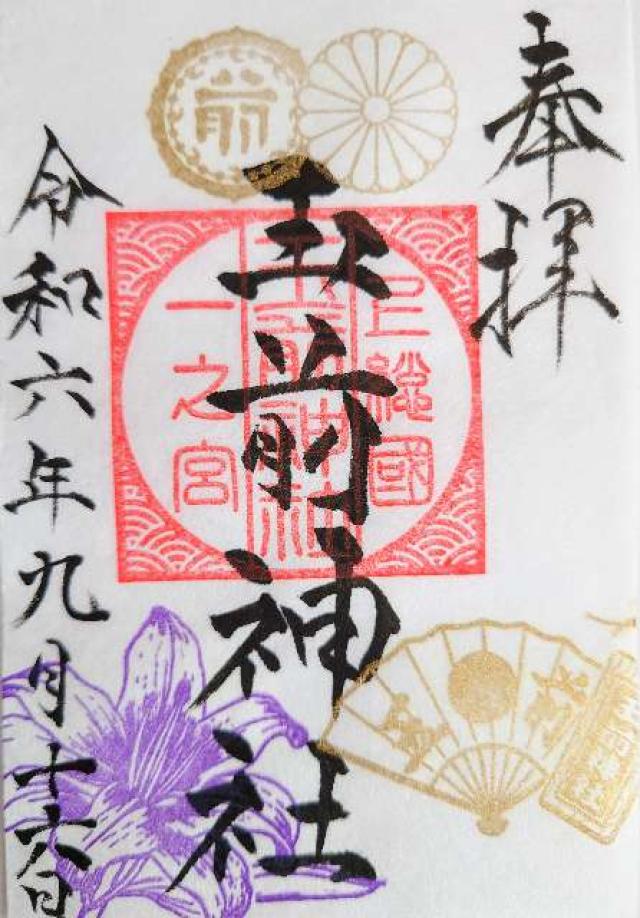 奉拝
上総國
玉前神社
一之宮
玉前神社
令和六年九月十六日
前